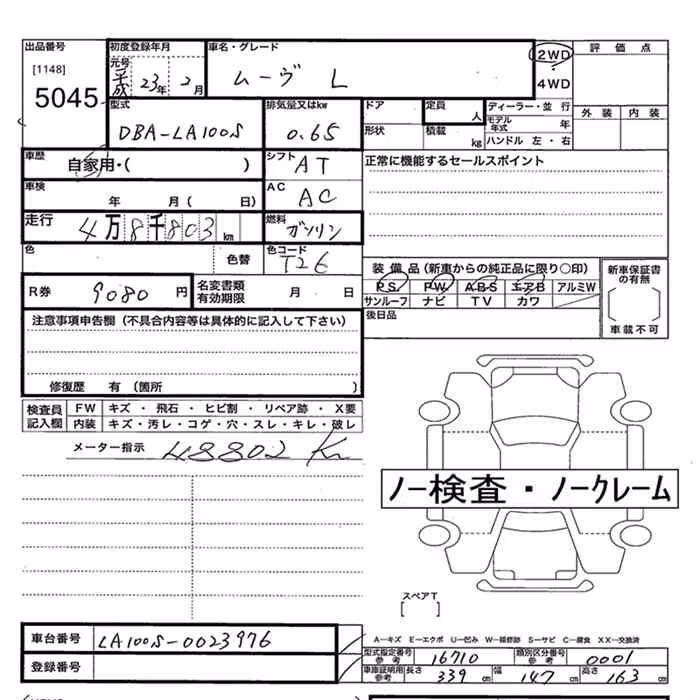 出品番号
[1148]
5045
初度登録年月
元号
平成 23年 2月
車名・グレード
ムーヴ L
2WD
4WD
評価点
外装 内装
型式
DBA-LA100S
排気量又はkw
0.65
ドア
定員
人
形状
積載
kg
ディーラー・並行
モデル年式 年
ハンドル 左・右
車歴
自家用・( )
シフト
AT
正常に機能するセールスポイント
車検
年 月( 日)
AC
AC
走行
4万8千803km
燃料
ガソリン
色
色替
色コード
T26
装備品(新車からの純正品に限り○印)
PS PW ABS エアB アルミW
サンルーフ ナビ TV カワ
新車保証書の有無
車載不可
R券
9080円
名変書類有効期限
月 日
後日品
注意事項申告欄(不具合内容等は具体的に記入して下さい)
修復歴 有(箇所 )
検査員記入欄
FW キズ・飛石・ヒビ割・リペア跡・X要
内装 キズ・汚レ・コゲ・穴・スレ・キレ・破レ
メーター指示 48802 Km
ノー検査・ノークレーム
スペアT
[ ]
車台番号
LA100S-0023976
登録番号
A—キズ E—エクボ U—凹み W—補修跡 S—サビ C—腐食 XX—交換済
型式指定番号 参考 16710
類別区分番号 参考 0001
車庫証明用 参考 長さ 339cm 幅 147cm 高さ 163cm